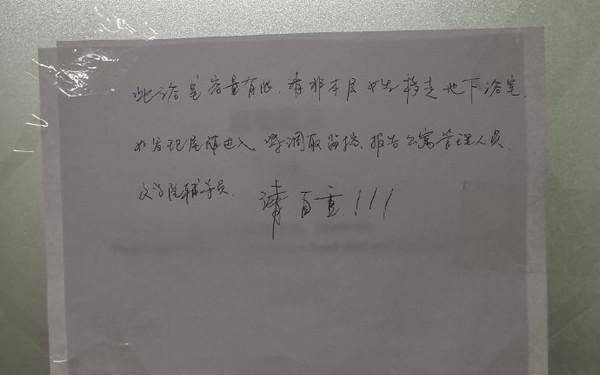 此浴室容量有限,请非本层女生移走地下浴室.
如发现尾随进入,将调取监控,报告公寓管理人员
及学院辅导员. 请自重!!!